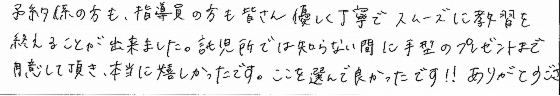 予約係の方も、指導員の方も皆さん優しく丁寧でスムーズに教習を
終えることが出来ました。託児所では知らない間に手型のプレゼントまで
用意して頂き、本当に嬉しかったです。ここを選んで良かったです!! ありがとうござ